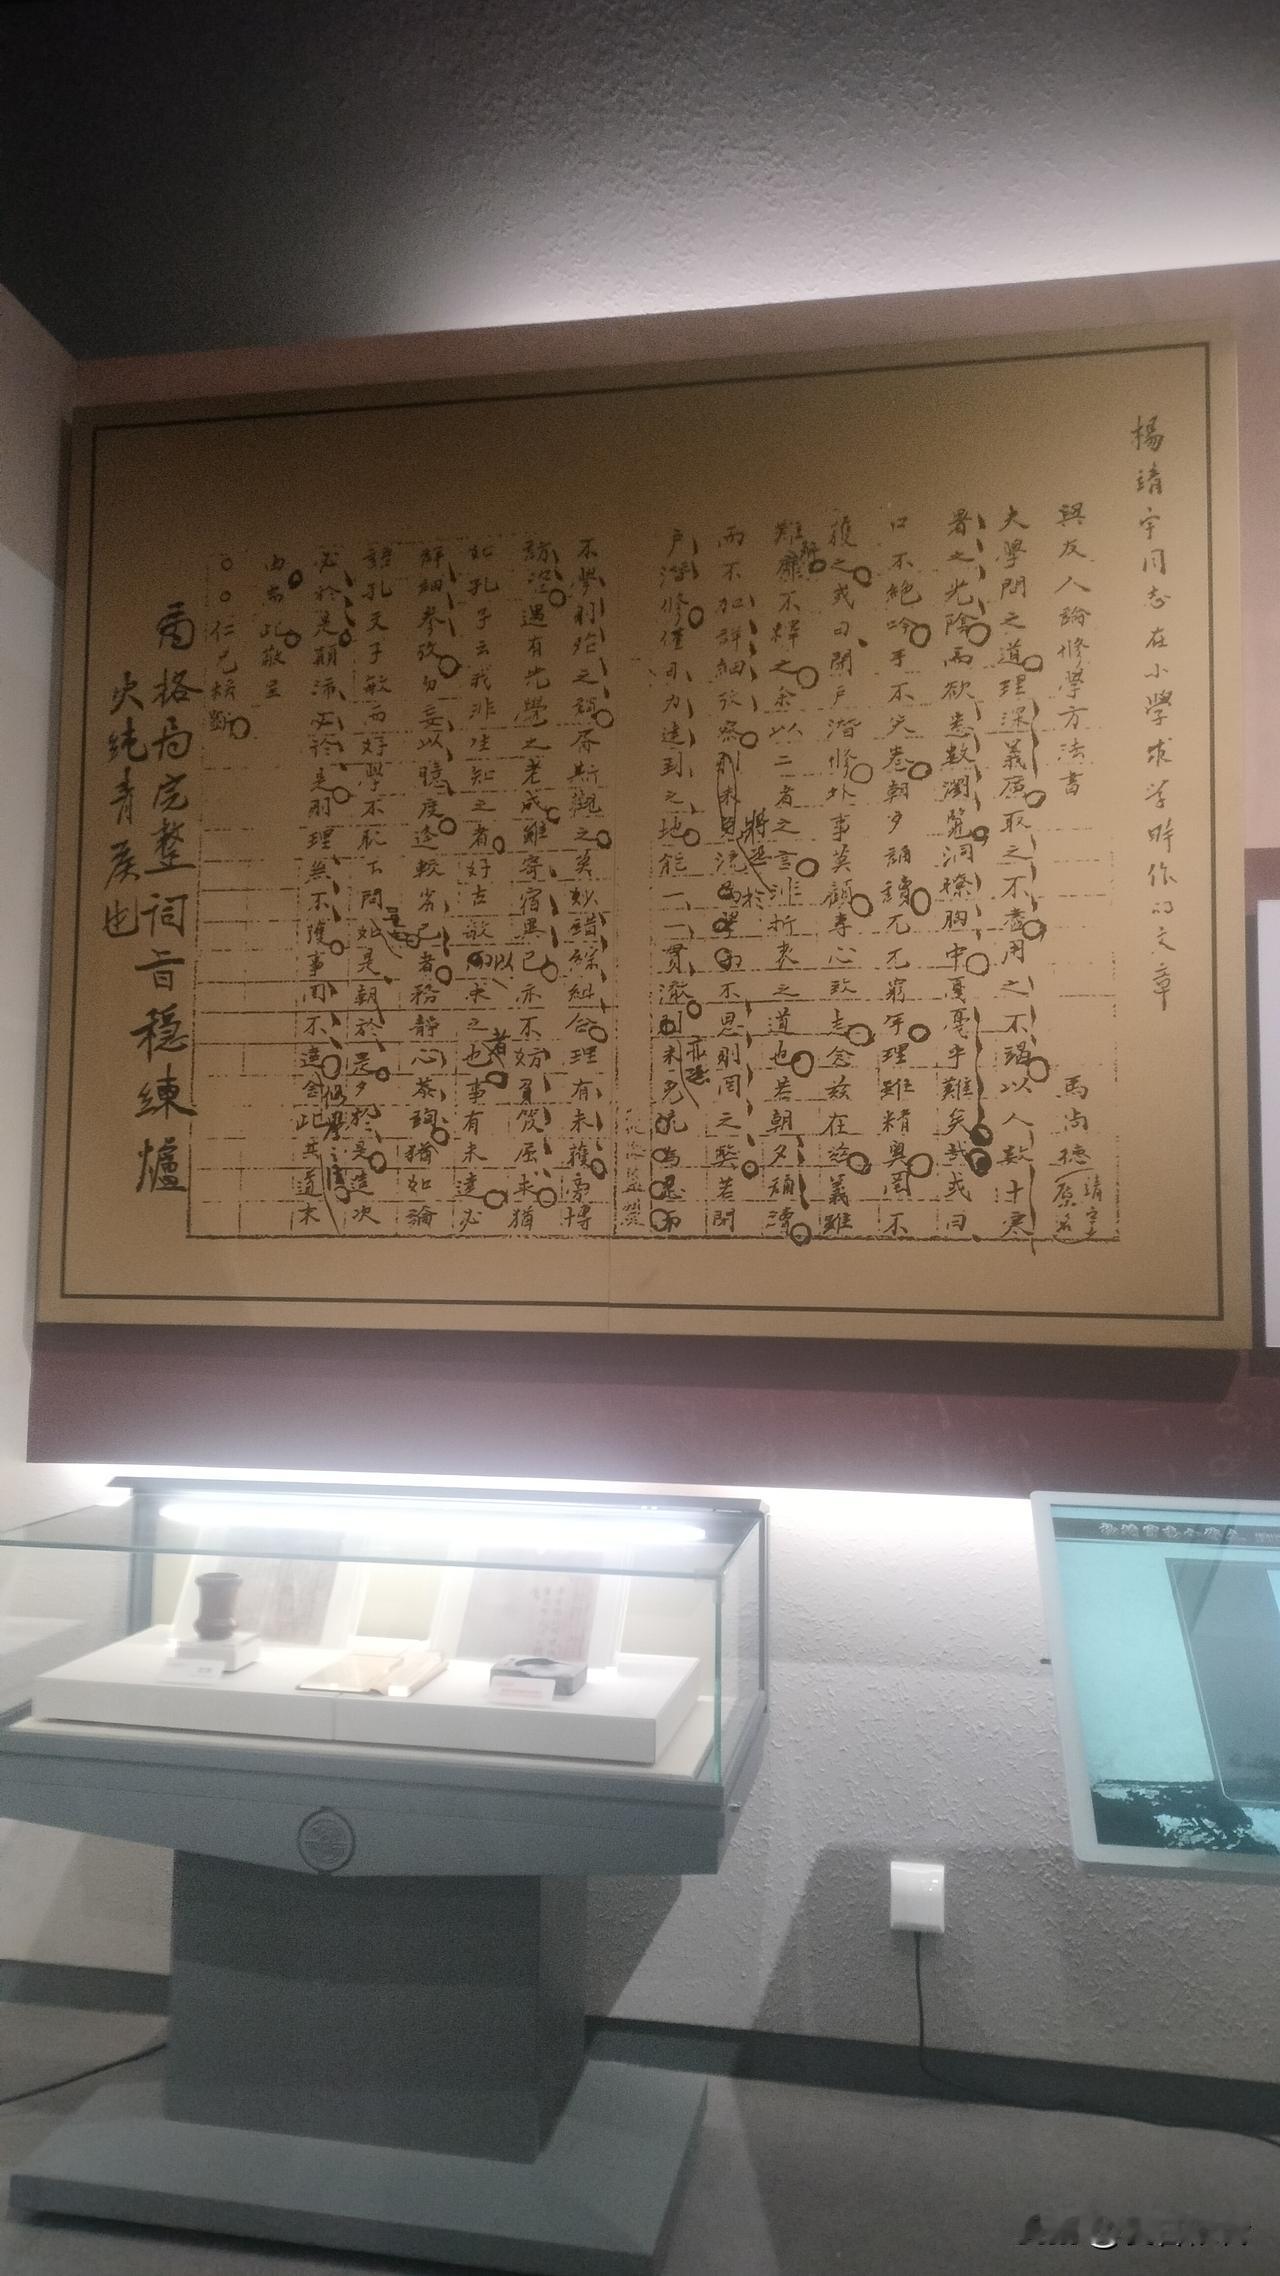 楊靖宇同志在小學求学時作的文章
與友人論修學方法書
馬尚德
靖宇
原名
夫學問之道理深義廣取之不盡用之不竭以人數十寒
暑之光陰而欲悉數瀏覽洞橑胸中戛戛乎難矣哉或曰
口不絕吟手不失卷朝夕誦讀兀兀窮年理雖精奧罔不
獲之或曰閉戶潛修外事莫顧專心致志念茲在茲義雖
難靡不釋之余以二者之言非折衷之道也若朝夕誦讀
而不加詳細攷察則未免流為學而不思則罔之弊若閉
將恐於
戶潛修僅可力達到之地能一一貫澈則未免流為思而
亦恐
不學則殆之誚唇斯觀之英妙錯綜糾合理有未獲要博
訪遇有先覺之老成雖寄宿異己亦不妨負笈屈求猶
如孔子云我非生知之者好古敏以求之也事有未達必
者
詳細參攷勿妄以臆度逢較劣己者務靜心恭詢猶如論
語孔夫子敏而好學不恥下問如是朝於是夕於是造次
必於是顛沛必於是則理無不獲事罔不達舍此其道末
修學
由爲此敬呈
○○仁兄核斷
局格局完整詞旨穩練爐
火純青矦也